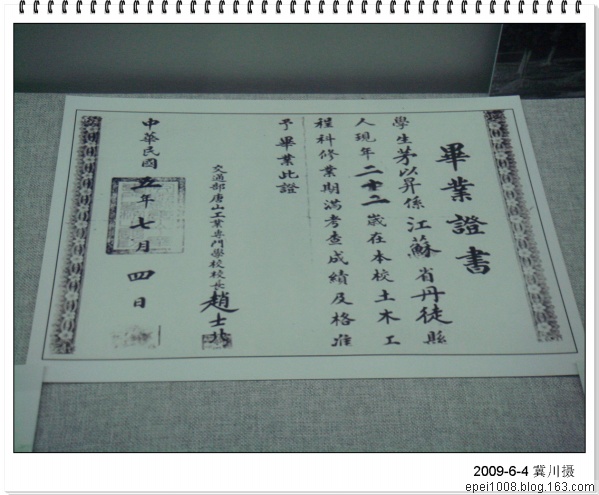 畢業證書
學生茅以昇係江蘇省丹徒縣
人現年二十二歲在本校土木工
程科修業期滿考查成績及格准
予畢業此證
交通部唐山工業專門學校校長趙士北
中華民國五年七月四日
2009-6-4 冀川摄
epei1008.blog.163.com